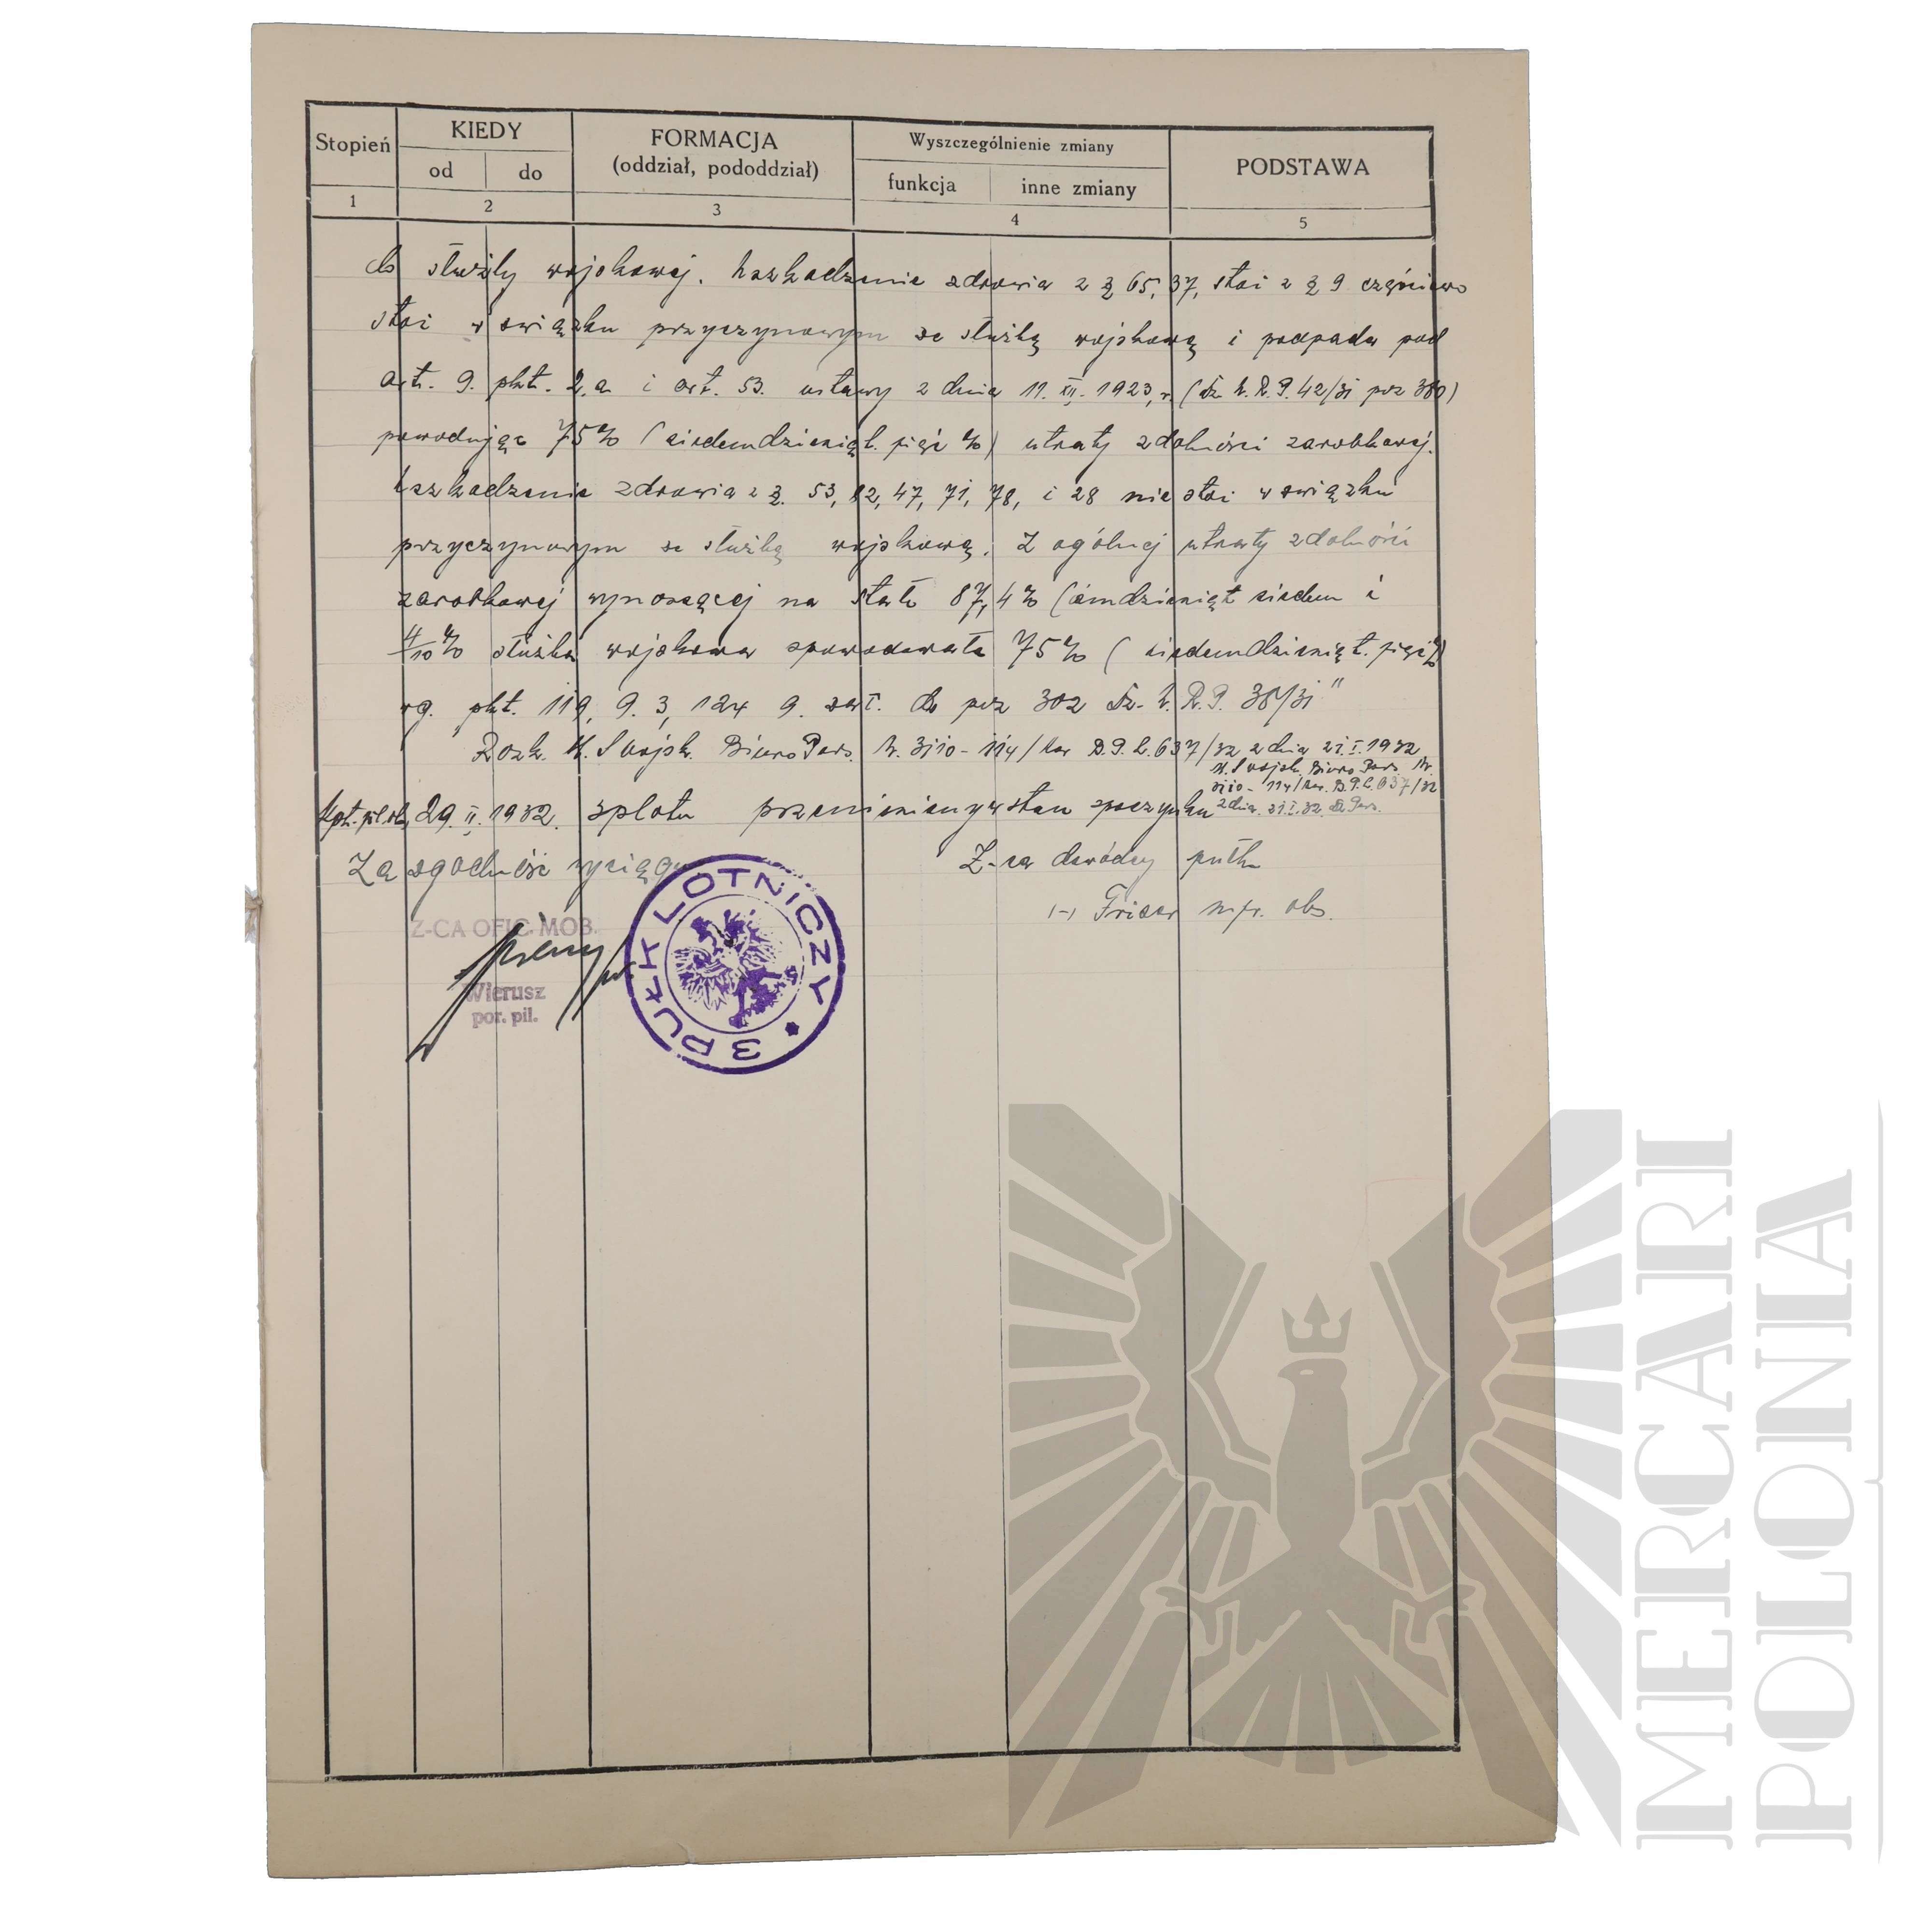 Stopień
KIEDY
FORMACJA
(oddział, pododdział)
Wyszczególnienie zmiany
PODSTAWA
od
do
funkcja
inne zmiany
1
2
3
4
5
do służby wojskowej. Uszkodzenie zdrowia z § 65, 37, stoi z § 9 częściowo
stoi w związku przyczynowym ze służbą wojskową i podpada pod
art. 9. pkt. 2.a i art. 53. ustawy z dnia 11. XII. 1923, r. (Dz. U. R. P. 42/31 poz 380)
powodując 75% (siedemdziesiąt. pięć %) utraty zdolności zarobkowej.
Uszkodzenie zdrowia z §. 53, 82, 47, 71, 78, i 28 nie stoi w związku
przyczynowym ze służbą wojskową. Z ogólnej utraty zdolności
zarobkowej wynoszącej na stałe 87,4% (osiemdziesiąt siedem i
4/10 % służba wojskowa spowodowała 75% (siedemdziesiąt. pięć %)
wg. pkt. 119, 9. 3, 124 9. zał. do poz 302 Dz. U. R. P. 38/31."
Rozk. M. S Wojsk. Biuro Pers. L. 3110-114/Kar B. P. L. 637/32 z dnia 21. I. 1932
M. S Wojsk. Biuro Pers. Nr.
3110-114/Kar. B. P. L. 637/32
z dnia 21. I. 32. B. Pers.
Kpt. pil. 29. II. 1932. 3 plotn przeniesiony w stan spoczynku
Za zgodność wyciągu
Z-ca dowódcy pułku
(-) Friser mjr. obs.
Z-CA OFIC. MOB.
Wierusz
por. pil.
3 PUŁK LOTNICZY
MERCARI
POLONIA